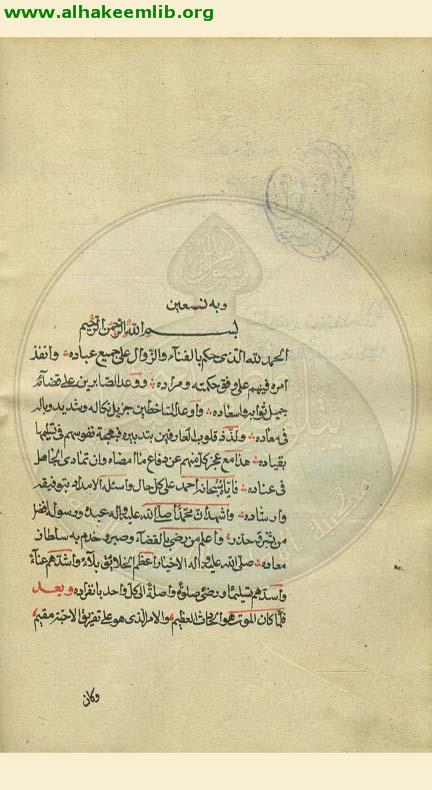 www.alhakeemlib.org
وبه نستعين
بسم الله الرحمن الرحيم
الحمد لله الذي حكم بالفناء والزوال على جميع عباده وانفذ
امره فيهم على وفق حكمته ومراده ووعد الصابرين على قضائه
جميل ثوابه واسعاده واوعد الساخطين جزيل نكاله وشديد وباله
في معاده ولذذ قلوب العارفين بتدبيره مهجة نفوسهم في تسليمها
بقياده هذا مع عجز كل منهم عن دفاع ما امضاه وان تمادى الجاهل
في عناده فاياه سبحانه احمد على كل حال واسئله الامداد بتوفيقه
وارشاده واشهد ان محمدا صلى الله عليه واله عبده ورسوله افضل
من بشر وحذر واعلم من رضي بالقضاء وصبر وخدم به سلطان
معاده صلى الله عليه واله الاخيار اعظم الخلائق بلاء واشدهم عناء
واسدهم تسليما ورضى صلوة واصلة الى كل واحد بانفراده وبعد
فلما كان الموت هو الحادث العظيم والامر الذي هو على تفريق الاحبة مقيم
وكان